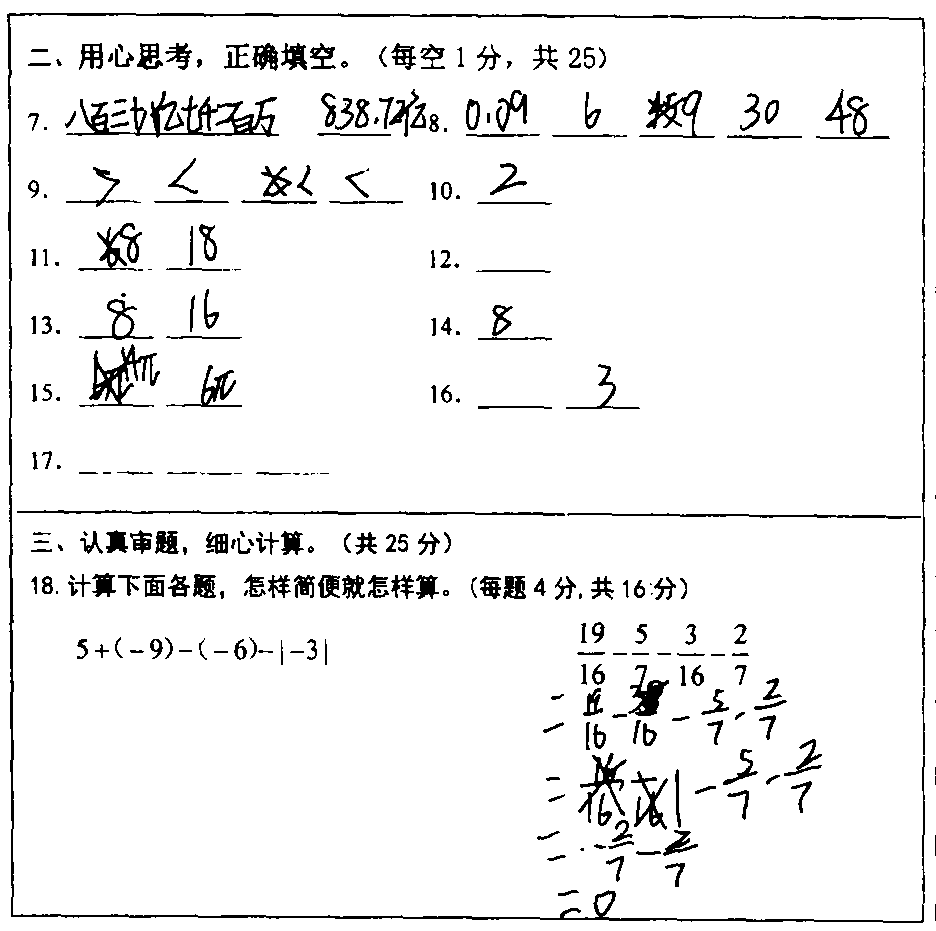 二、用心思考，正确填空。（每空1分，共25）
7. 八百三十八亿七千二百万 838.72亿 8. 0.09 6 9 30 48
9. > < < < 10. 2
11. 8 18 12.
13. 8 16 14. 8
15. 4π 6π 16. 3
17.
三、认真审题，细心计算。（共25分）
18. 计算下面各题，怎样简便就怎样算。（每题4分，共16分）
5+(-9)-(-6)-|-3| 19/16-5/7-3/16-2/7
=19/16-3/16-5/7-2/7
=1-5/7-2/7
=2/7-2/7
=0